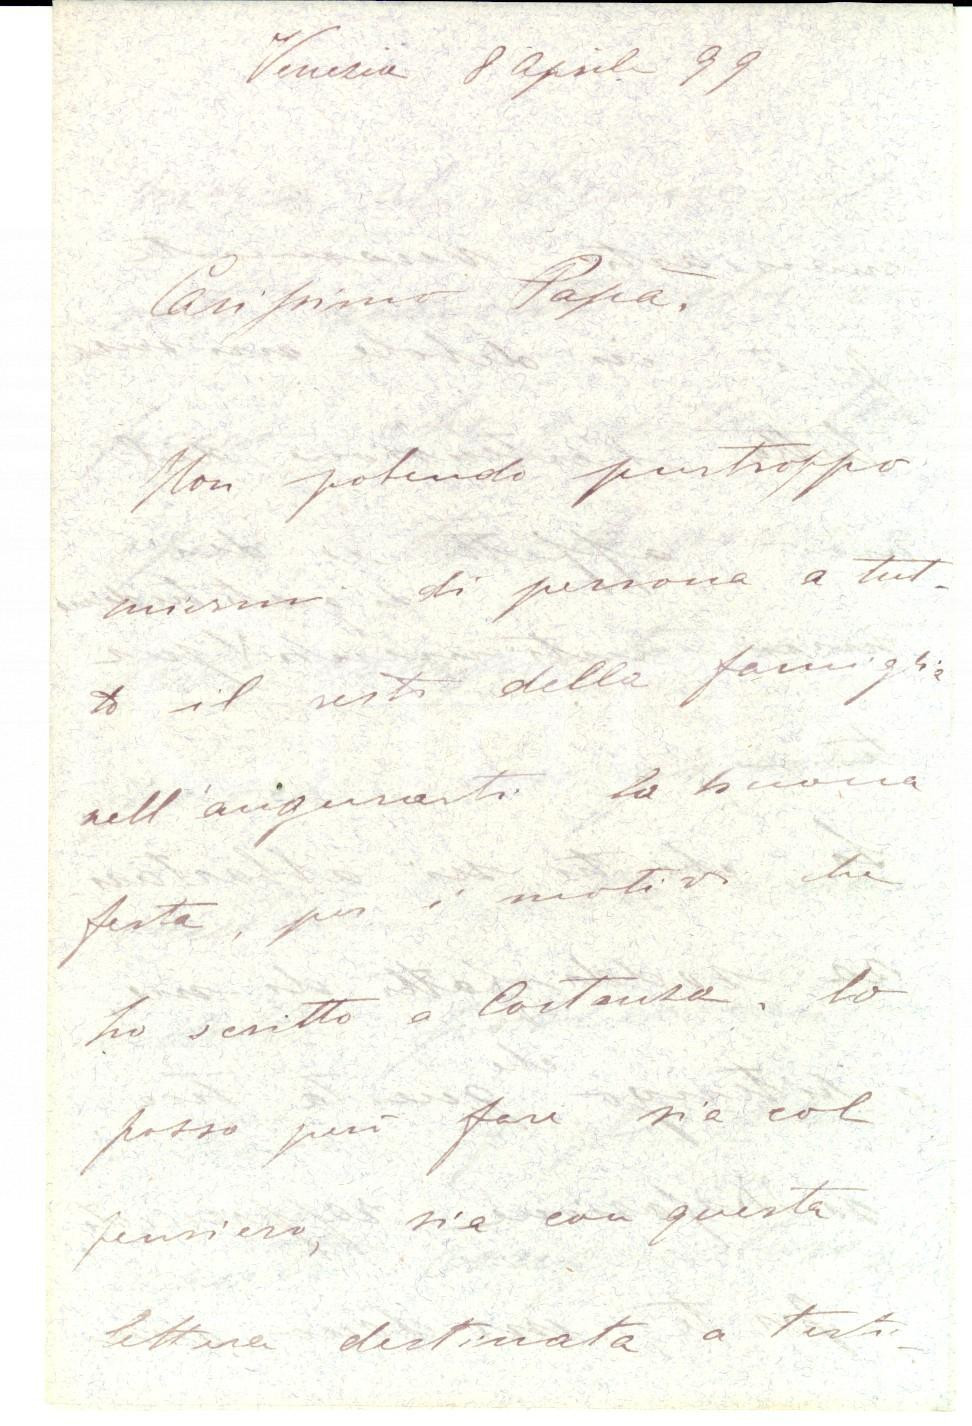 Venezia 8 Aprile 99
Carissimo Papà.
Non potendo purtroppo
unirmi di persona a tut-
to il resto della famiglia
nell'augurarti la buona
festa, per i motivi che
ho scritto a Costanza, lo
posso però fare sia col
pensiero, sia con questa
lettera destinata a testi-